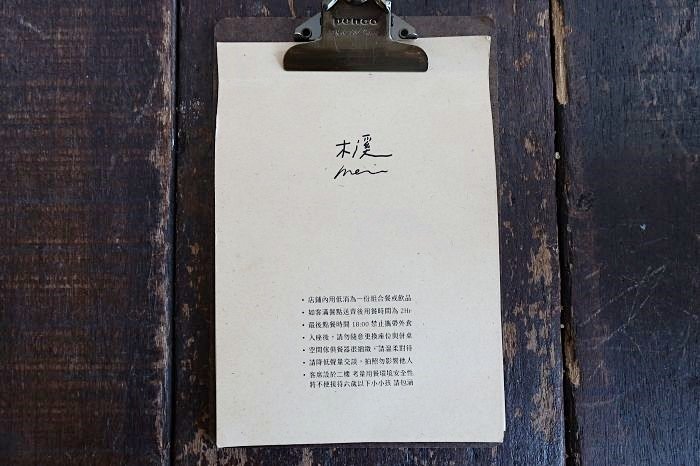 penco
木溪
menu
・店鋪內用低消為一份組合餐或飲品
・如客滿餐點送齊後用餐時間為 2Hr
・最後點餐時間 18:00 禁止攜帶外食
・入座後，請勿隨意更換座位與併桌
・空間傢俱餐器很細緻，請溫柔對待
・請降低聲量交談，拍照勿影響他人
・客席設於二樓 考量用餐環境安全性
將不便接待六歲以下小小孩 請包涵